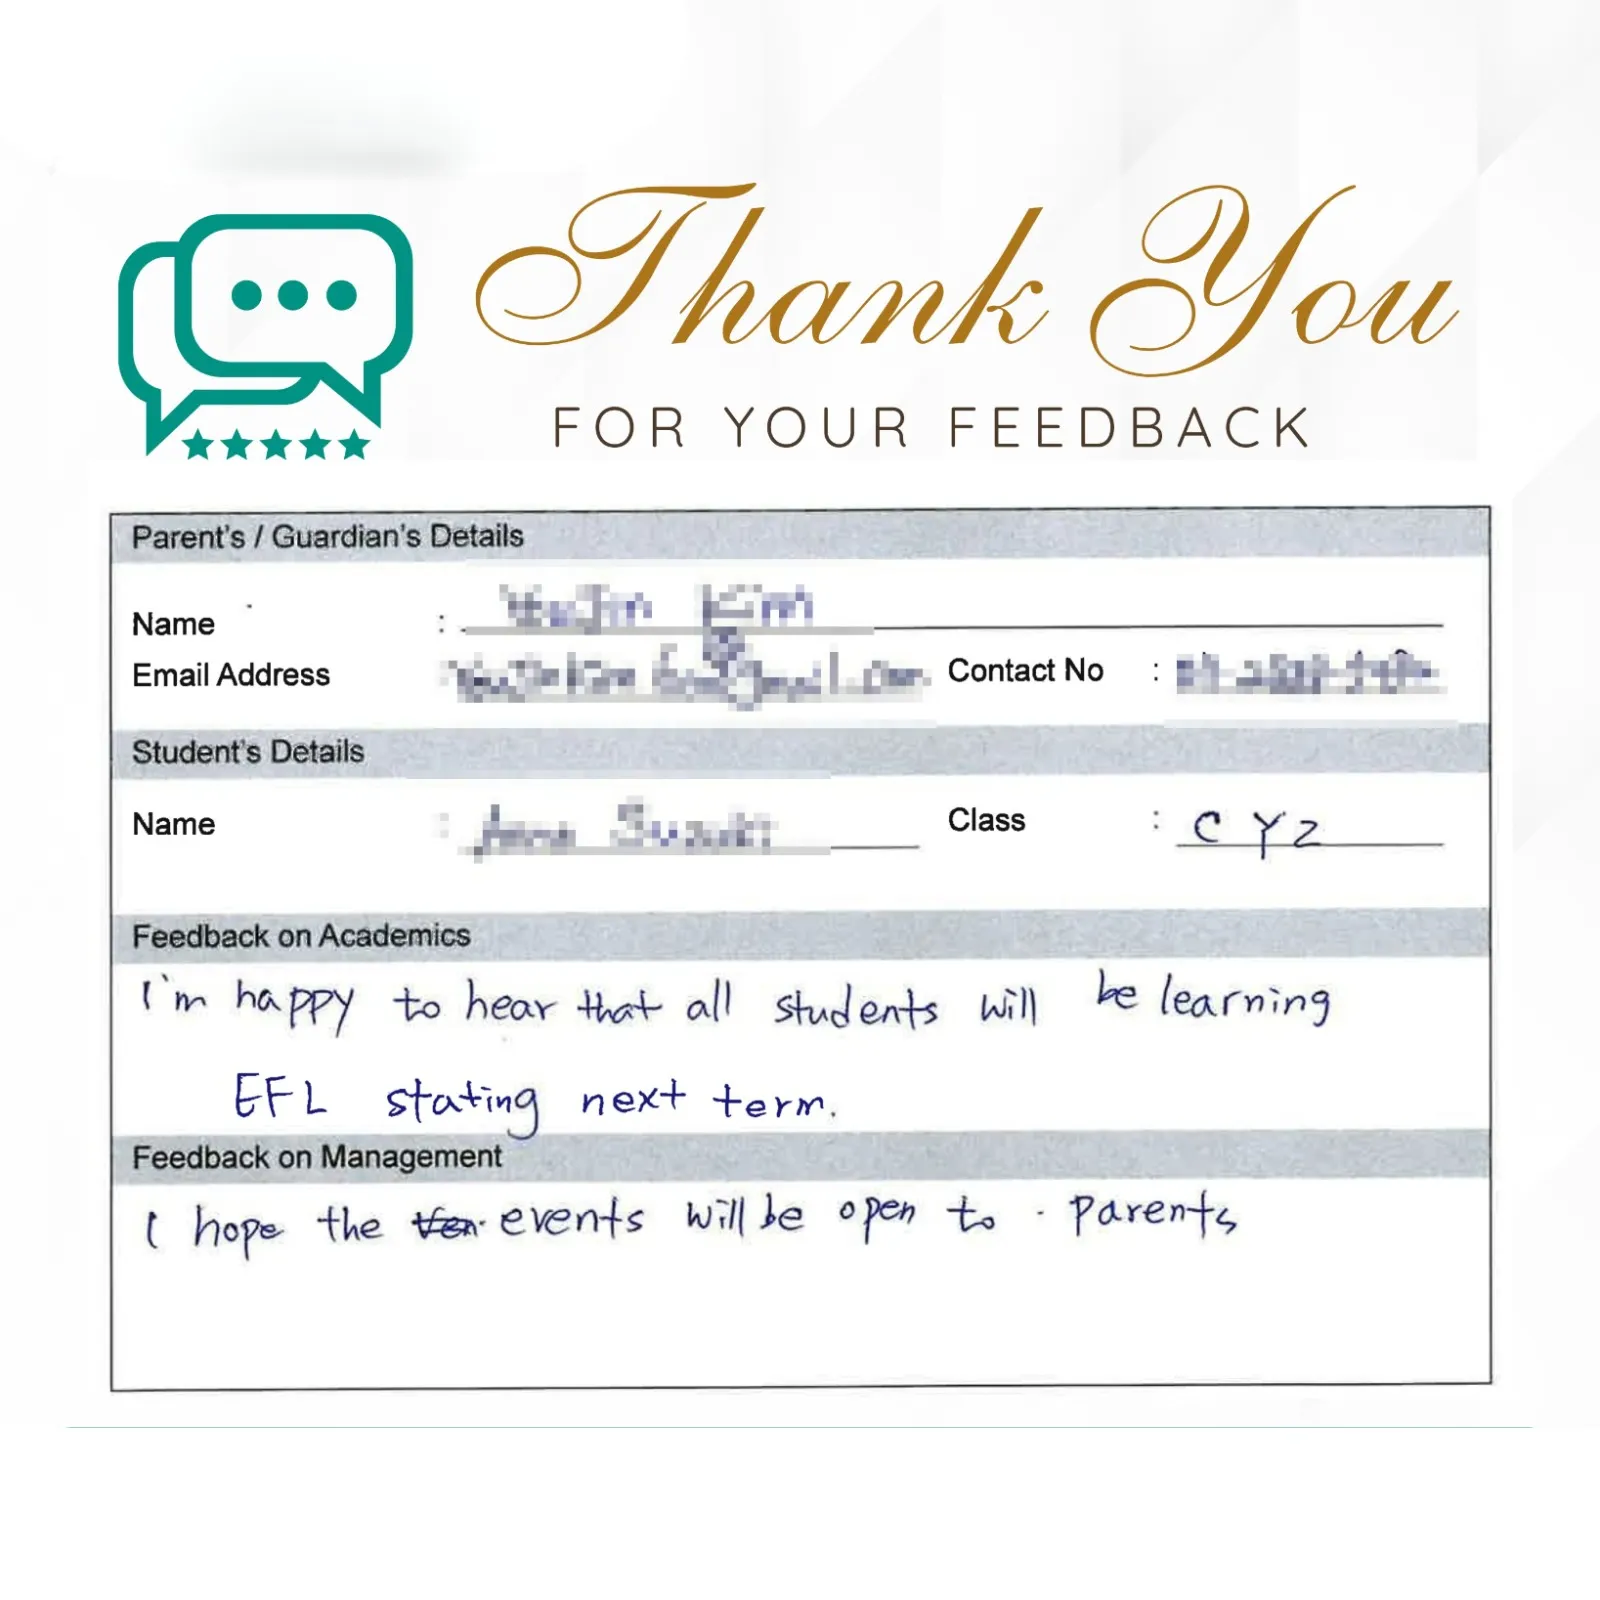 Thank You
FOR YOUR FEEDBACK
Parent's / Guardian's Details
Name :
Email Address Contact No :
Student's Details
Name : Class : CY2
Feedback on Academics
I'm happy to hear that all students will be learning
EFL stating next term.
Feedback on Management
I hope the events will be open to parents